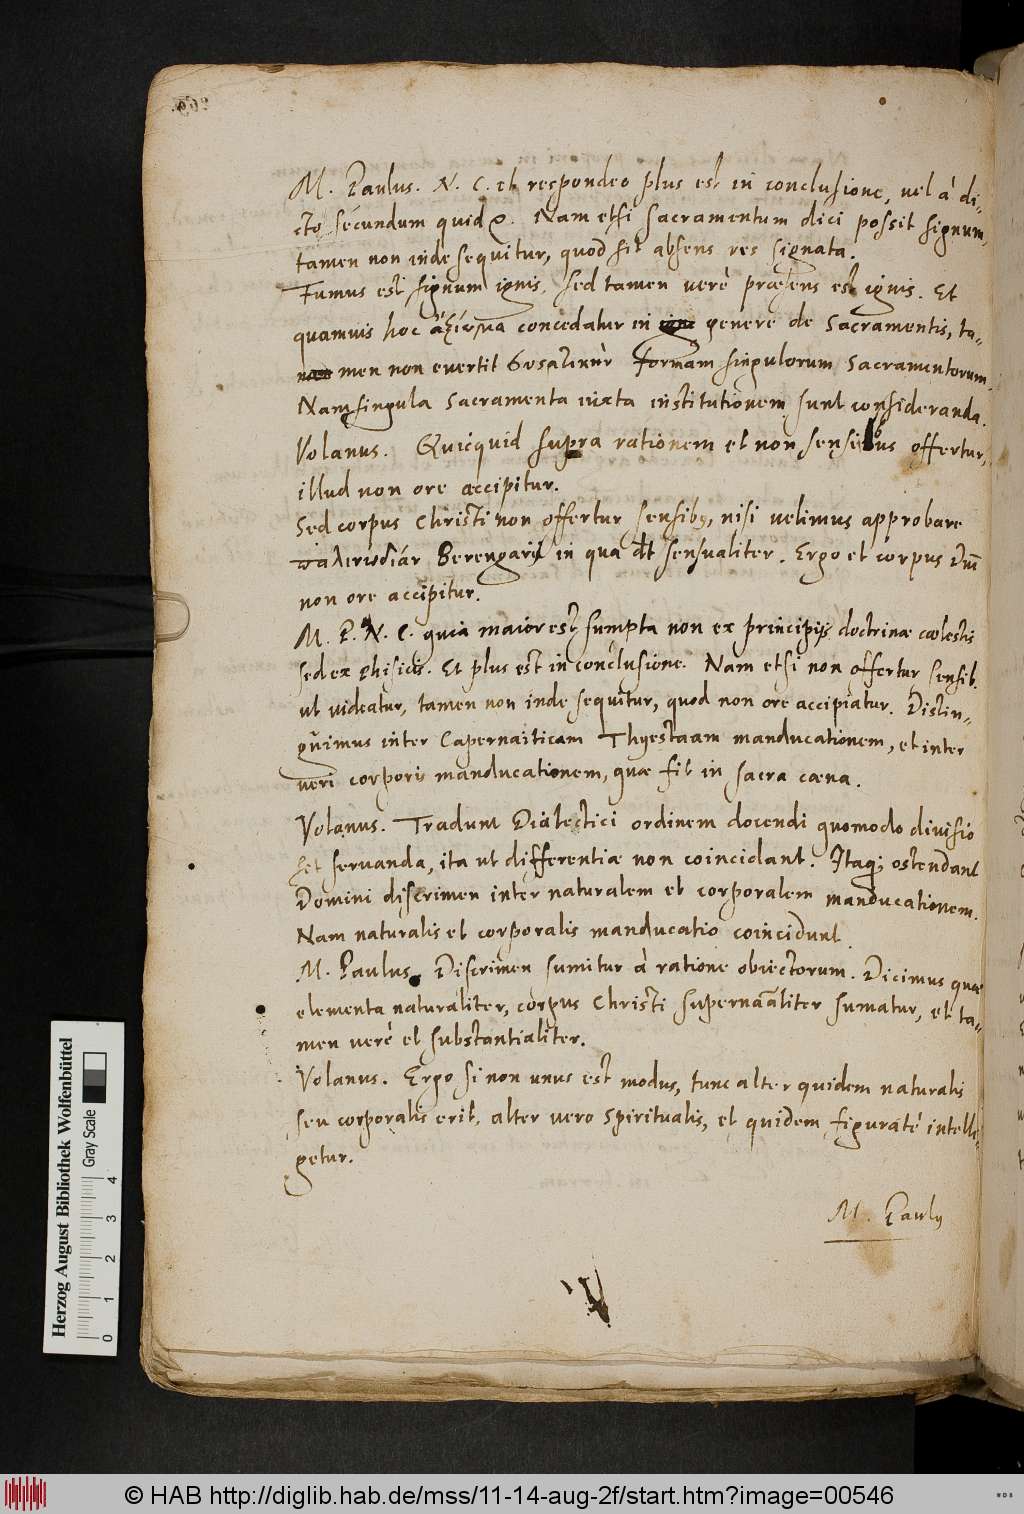 M. Paulus. N. C. et respondeo plus est in conclusione, vel à di-
cto secundum quid &. Nam etsi sacramentum dici possit signum,
tamen non inde sequitur, quod sit absens res signata.
Fumus est signum ignis, sed tamen verè præsens est ignis. Et
quamuis hoc ἀξίωμα concedatur in genere de Sacramentis, ta-
men non evertit formam singulorum Sacramentorum.
Nam singula Sacramenta iuxta institutionem sunt consideranda.
Volanus. Quicquid supra rationem et non sensibus offertur,
illud non ore accipitur.
Sed corpus Christi non offertur sensibꝰ, nisi velimus approbare
παλινωδίαν Berengarij in qua dt sensualiter. Ergo et corpus Dni
non ore accipitur.
M. P. N. C. quia maior est sumpta non ex principijs doctrinæ cælestis
sed ex phisicis. Et plus est in conclusione. Nam etsi non offertur sensib.
ut videatur, tamen non inde sequitur, quod non ore accipiatur. Distin-
guimus inter Capernaiticam Thyestæam manducationem, et inter
veri corporis manducationem, quæ fit in sacra cæna.
Volanus. Tradunt Dialectici ordinem docendi quomodo divisio
sit servanda, ita ut differentiæ non coincidant. Itaq; ostendant
Domini discrimen inter naturalem et corporalem manducationem.
Nam naturalis et corporalis manducatio coincidunt.
M. Paulus. Discrimen sumitur à ratione obiectorum. Dicimus quæ
elementa naturaliter, corpus Christi supernāāliter sumatur, et ta-
men verè et substantialiter.
Volanus. Ergo si non unus est modus, tunc alter quidem naturalis
seu corporalis erit, alter vero spiritualis, et quidem figuratè intelli-
getur.
M. Paulꝰ
Herzog August Bibliothek Wolfenbüttel
Gray Scale
0 1 2 3 4
© HAB http://diglib.hab.de/mss/11-14-aug-2f/start.htm?image=00546